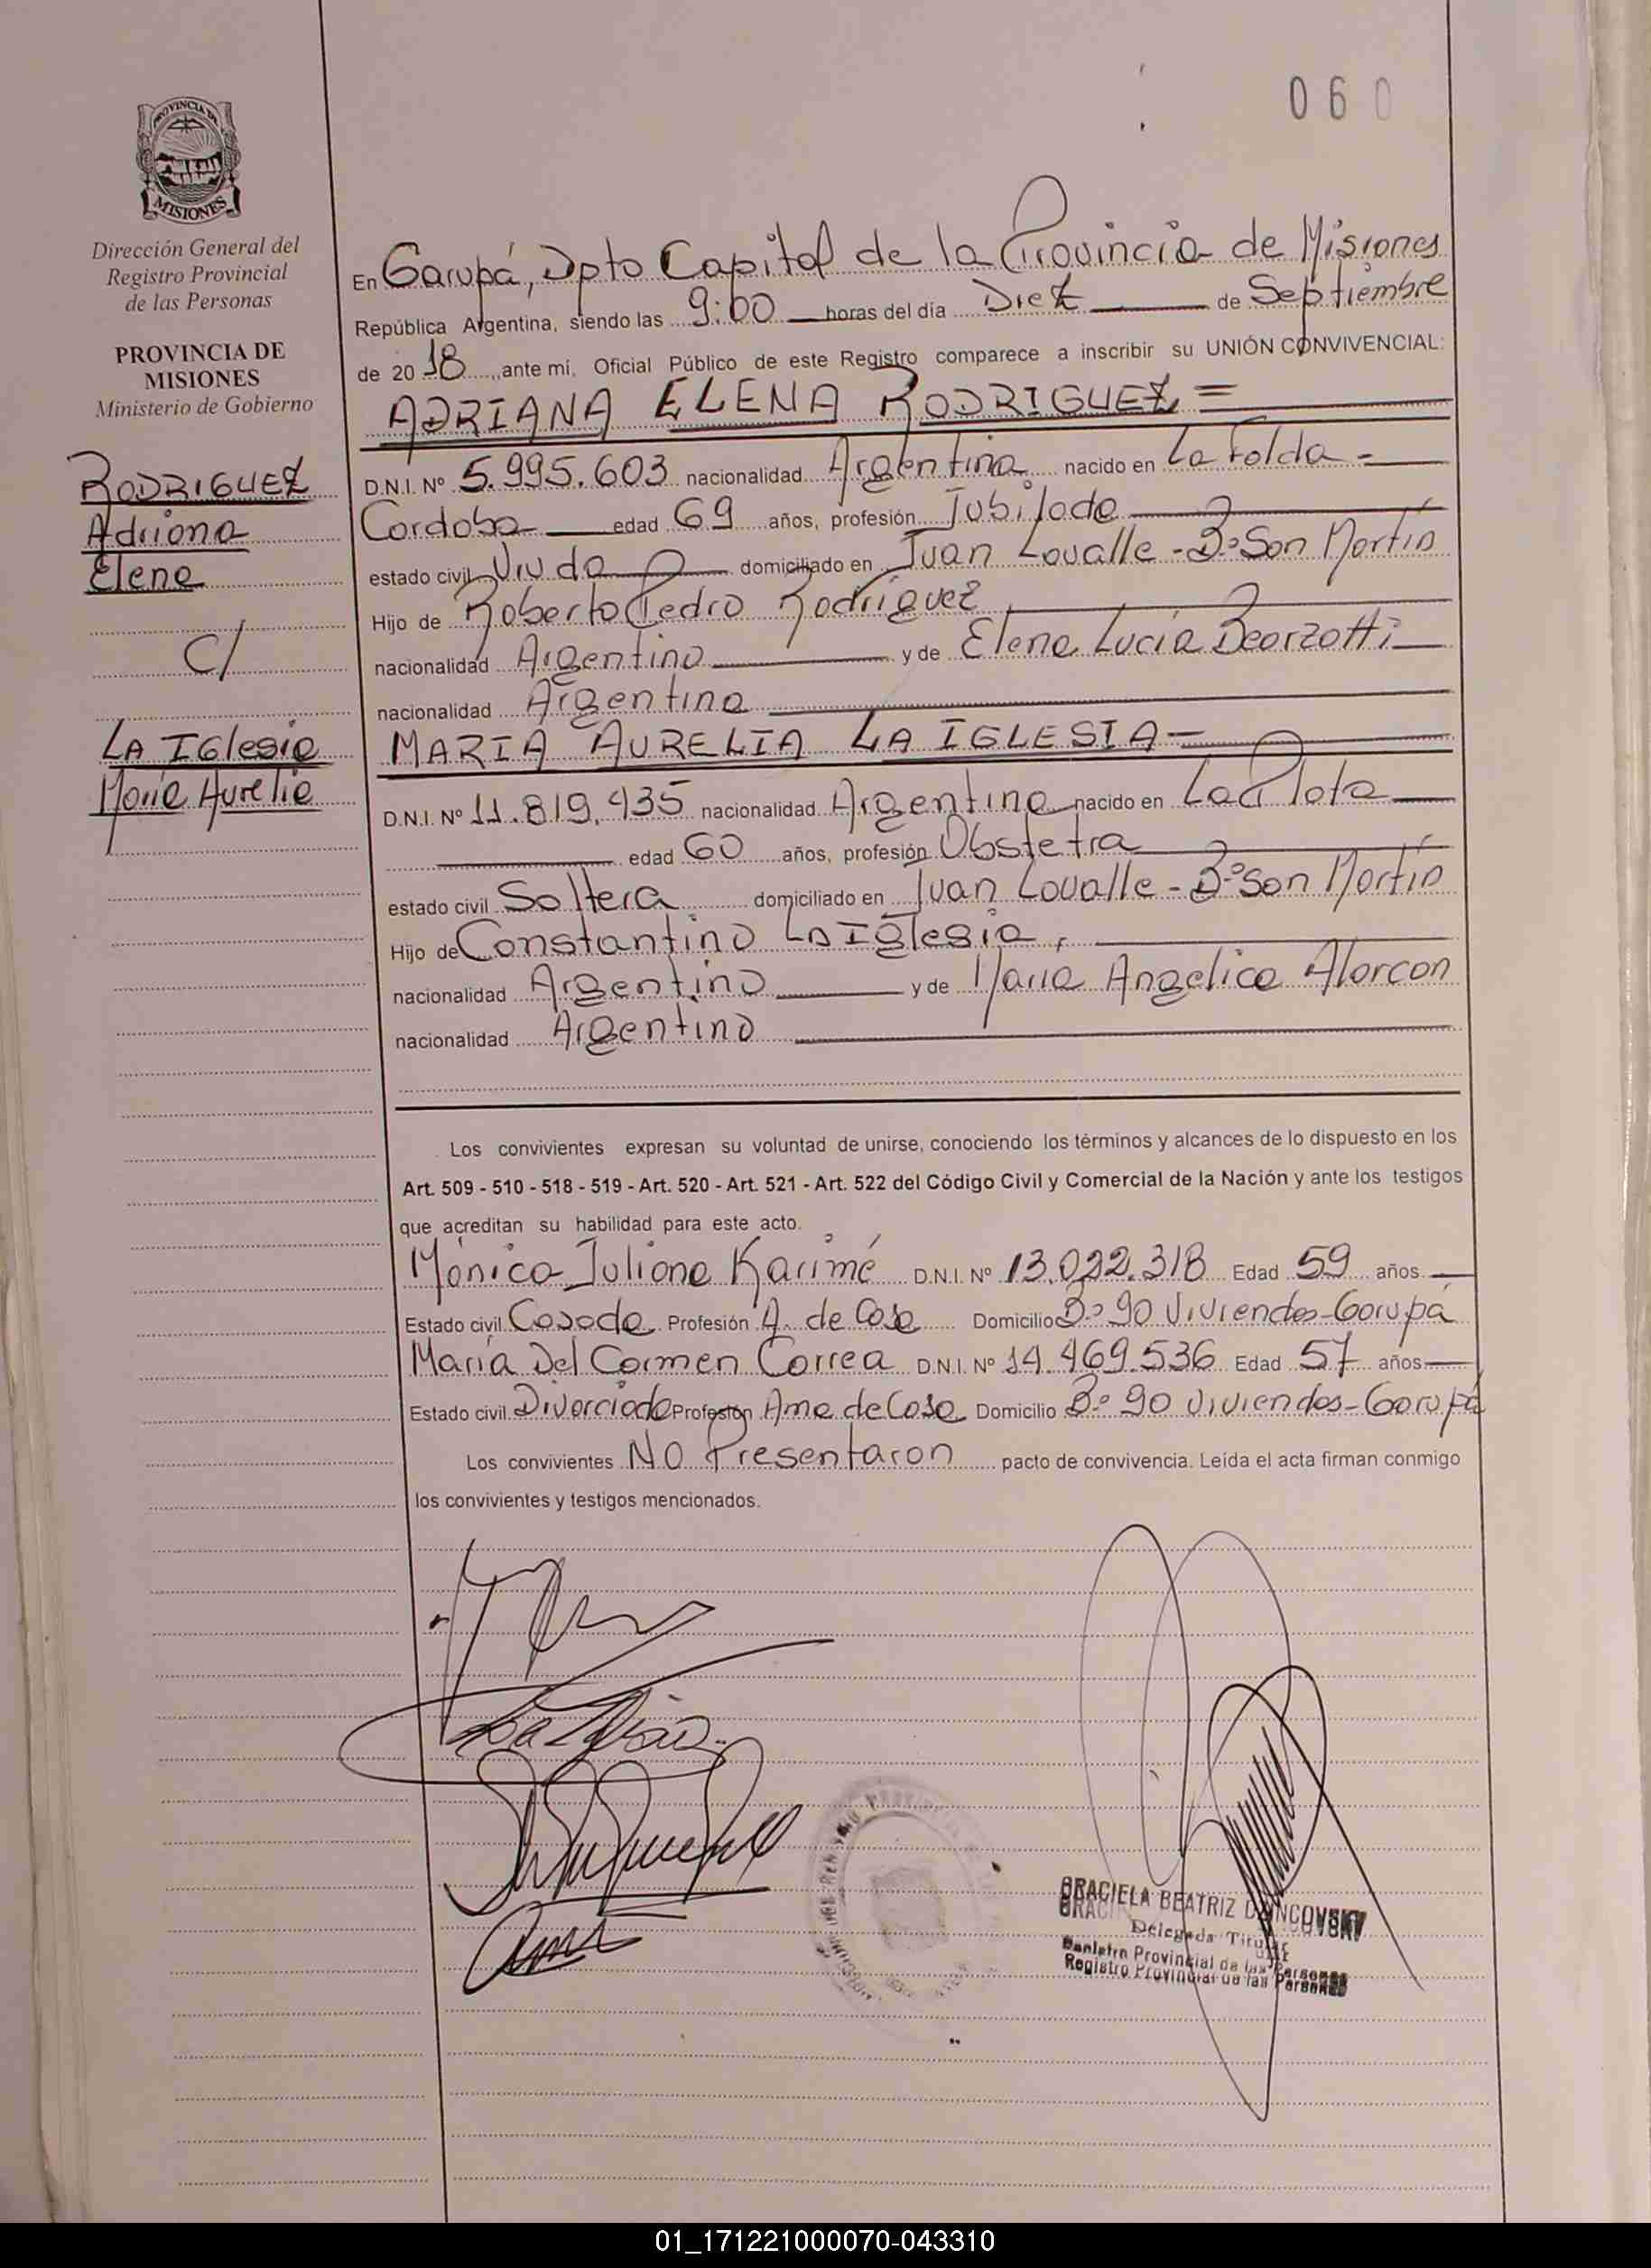 060
PROVINCIA DE
MISIONES
Dirección General del
Registro Provincial
de las Personas
PROVINCIA DE
MISIONES
Ministerio de Gobierno
RODRIGUEZ
Adriana
Elena
C/
LA IGlesia
María Aurelia
En Garupá, Dpto Capital de la Provincia de Misiones
República Argentina, siendo las 9:00 horas del día Diez de Septiembre
de 2018, ante mí, Oficial Público de este Registro comparece a inscribir su UNIÓN CONVIVENCIAL:
ADRIANA ELENA RODRIGUEZ =
D.N.I. Nº 5.995.603 nacionalidad Argentina nacido en La Folda -
Cordoba edad 69 años, profesión Jubilada
estado civil Viuda domiciliado en Juan Lavalle - Bº San Martín
Hijo de Roberto Pedro Rodríguez
nacionalidad Argentino y de Elena Lucía Bearzotti
nacionalidad Argentina
MARIA AURELIA LA IGLESIA -
D.N.I. Nº 11.819.435 nacionalidad Argentina nacido en La Plata
edad 60 años, profesión Obstetra
estado civil Soltera domiciliado en Juan Lavalle - Bº San Martín
Hijo de Constantino LA IGlesia,
nacionalidad Argentino y de María Angelica Alarcon
nacionalidad Argentino
Los convivientes expresan su voluntad de unirse, conociendo los términos y alcances de lo dispuesto en los
Art. 509 - 510 - 518 - 519 - Art. 520 - Art. 521 - Art. 522 del Código Civil y Comercial de la Nación y ante los testigos
que acreditan su habilidad para este acto.
Mónica Juliana Karimé D.N.I. Nº 13.022.318 Edad 59 años
Estado civil Casada Profesión A. de Casa Domicilio Bº 90 Viviendas - Garupá
María Del Carmen Correa D.N.I. Nº 14.469.536 Edad 57 años
Estado civil Divorciada Profesión Ama de Casa Domicilio Bº 90 Viviendas - Garupá
Los convivientes NO Presentaron pacto de convivencia. Leída el acta firman conmigo
los convivientes y testigos mencionados.
GRACIELA BEATRIZ
Delegada Titular
Registro Provincial de las Personas
01_171221000070-043310